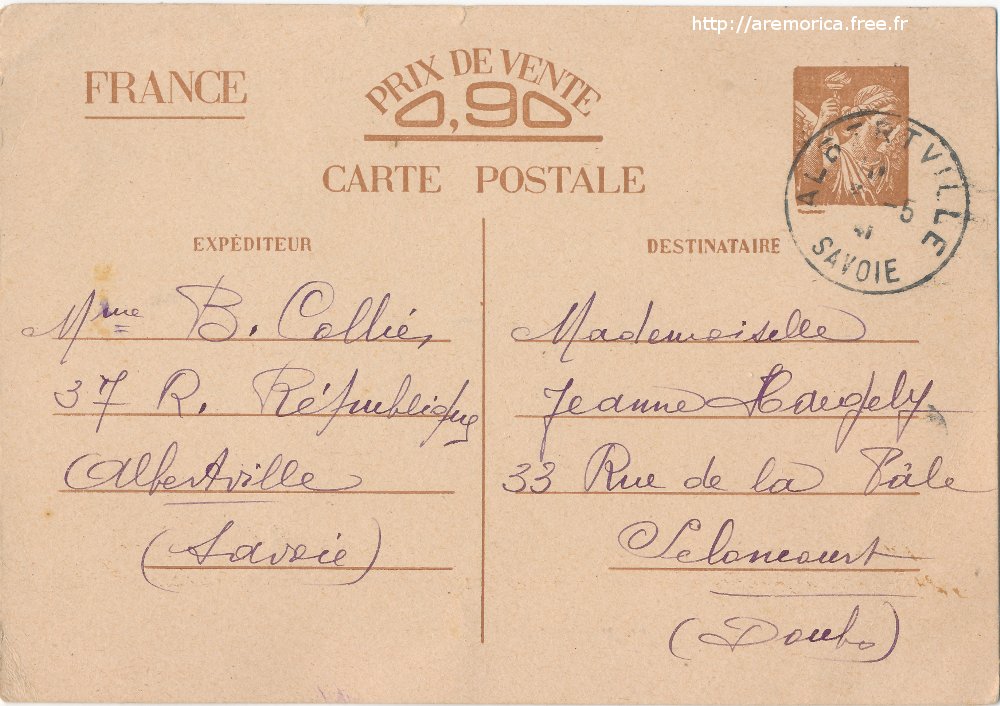 http://aremorica.free.fr
FRANCE
PRIX DE VENTE
0,90
CARTE POSTALE
ALBERTVILLE
-5
SAVOIE
EXPÉDITEUR
Mme B. Collié,
37 R. République
Albertville
(Savoie)
DESTINATAIRE
Mademoiselle
Jeanne
33 Rue de la Pâle
Seloncourt
(Doubs)